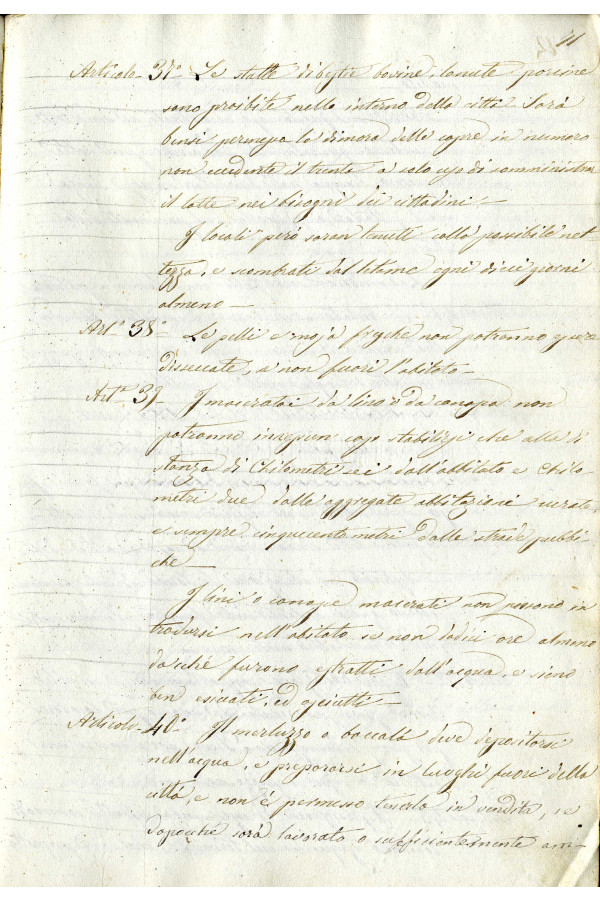 11
Articolo 37° Le stalle di bestie bovine, lanute, porcine
sono proibite nello interno della città. Sarà
bensì permessa la dimora delle capre in numero
non eccedente il trenta a solo uso di somministrar
il latte nei bisogni dei cittadini.—
I locali però saran tenuti colla possibile net-
tezza, e sgombrati dal letame ogni dieci giorni
almeno —
Art.° 38° Le pelli e moja fresche non potranno essere
disseccate, a non fuori l'abitato —
Art.° 39 I maceratoi da lino o da canapa non
potranno in nessun caso stabilirsi che alla di
stanza di Chilometri sei dall'abbitato e Chilo-
metri due dalle aggregate abbitazioni rurali,
e sempre cinquecento metri dalle strade pubbli-
che —
I lini o canape macerate non possono in
trodursi nell'abitato se non dodici ore almeno
dacchè furono estratti dall'acqua, e siano
ben esicati, ed asciutti —
Articolo 40° Il merluzzo o baccalà deve depositarsi
nell'acqua, e prepararsi in luoghi fuori della
città, e non è permesso tenerlo in vendita, se
dapoichè sarà lavorato o sufficientemente am-